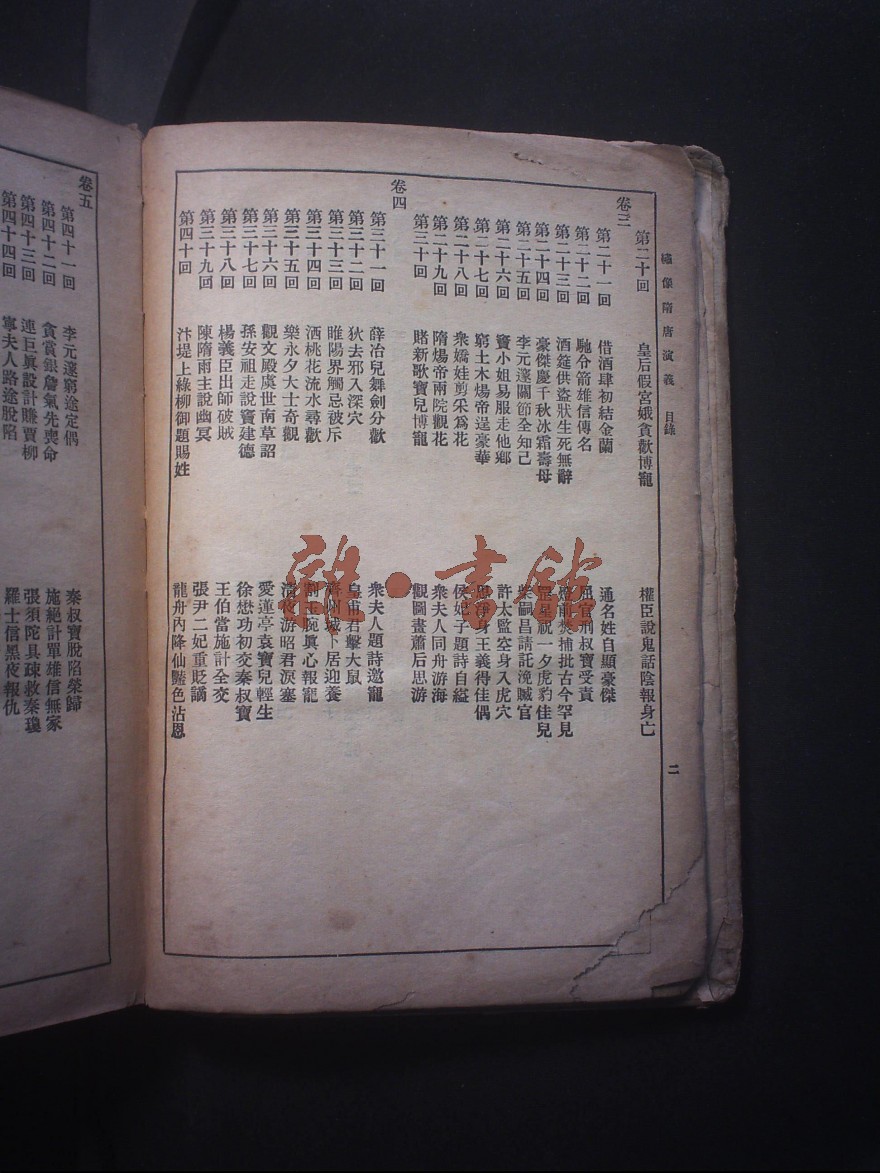 繡像隋唐演義 目錄
二
第二十回 皇后假宮娥貪歡博寵 權臣說鬼話陰報身亡
卷三
第二十一回 借酒肆初結金蘭 通名姓自顯豪傑
第二十二回 馳令箭雄信傳名 屈官刑叔寶受責
第二十三回 酒筵供盜狀生死無辭 燈前焚捕批古今罕見
第二十四回 豪傑慶千秋冰霜壽母 罡星祝一夕虎豹佳兒
第二十五回 李元邃關節全知己 柴嗣昌請託浼贓官
第二十六回 竇小姐易服走他鄉 許太監空身入虎穴
第二十七回 窮土木煬帝逞豪華 思淨身王義得佳偶
第二十八回 衆嬌娃剪采爲花 侯妃子題詩自縊
第二十九回 隋煬帝兩院觀花 衆夫人同舟游海
第三十回 賭新歌寶兒博寵 觀圖畫蕭后思游
卷四
第三十一回 薛冶兒舞劍分歡 衆夫人題詩邀寵
第三十二回 狄去邪入深穴 皇甫君擊大鼠
第三十三回 睢陽界觸忌被斥 齊州城卜居迎養
第三十四回 洒桃花流水尋歡 割玉腕眞心報寵
第三十五回 樂永夕大士奇觀 清夜游昭君淚塞
第三十六回 觀文殿虞世南草詔 愛蓮亭袁寶兒輕生
第三十七回 孫安祖走說竇建德 徐懋功初交秦叔寶
第三十八回 楊義臣出師破賊 王伯當施計全交
第三十九回 陳隋兩主說幽冥 張尹二妃重貶謫
第四十回 汴堤上綠柳御題賜姓 龍舟內降仙豔色沾恩
卷五
第四十一回 李元邃窮途定偶 秦叔寶脫陷榮歸
第四十二回 貪賞銀詹氣先喪命 施絕計單雄信無家
第四十三回 連巨眞設計賺賈柳 張須陀具疎救秦瓊
第四十四回 寧夫人路途脫陷 羅士信黑夜報仇
書館